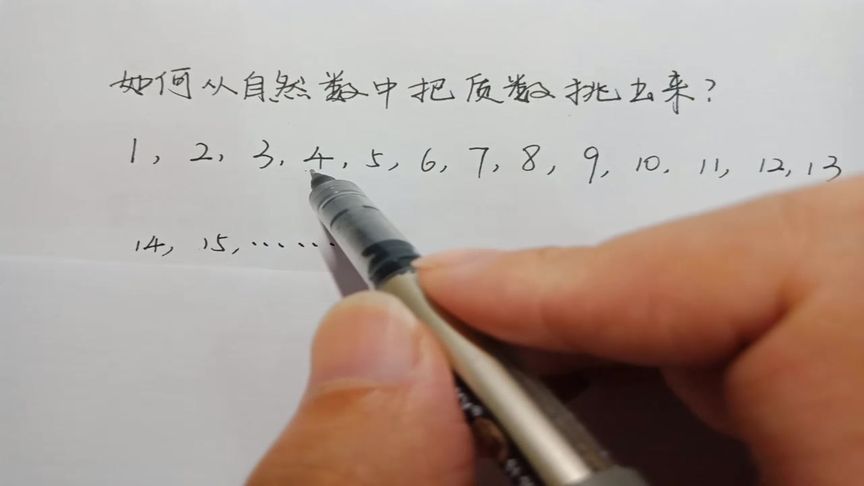 如何从自然数中把质数挑出来?
1, 2, 3, 4, 5, 6, 7, 8, 9, 10, 11, 12, 13
14, 15, ……